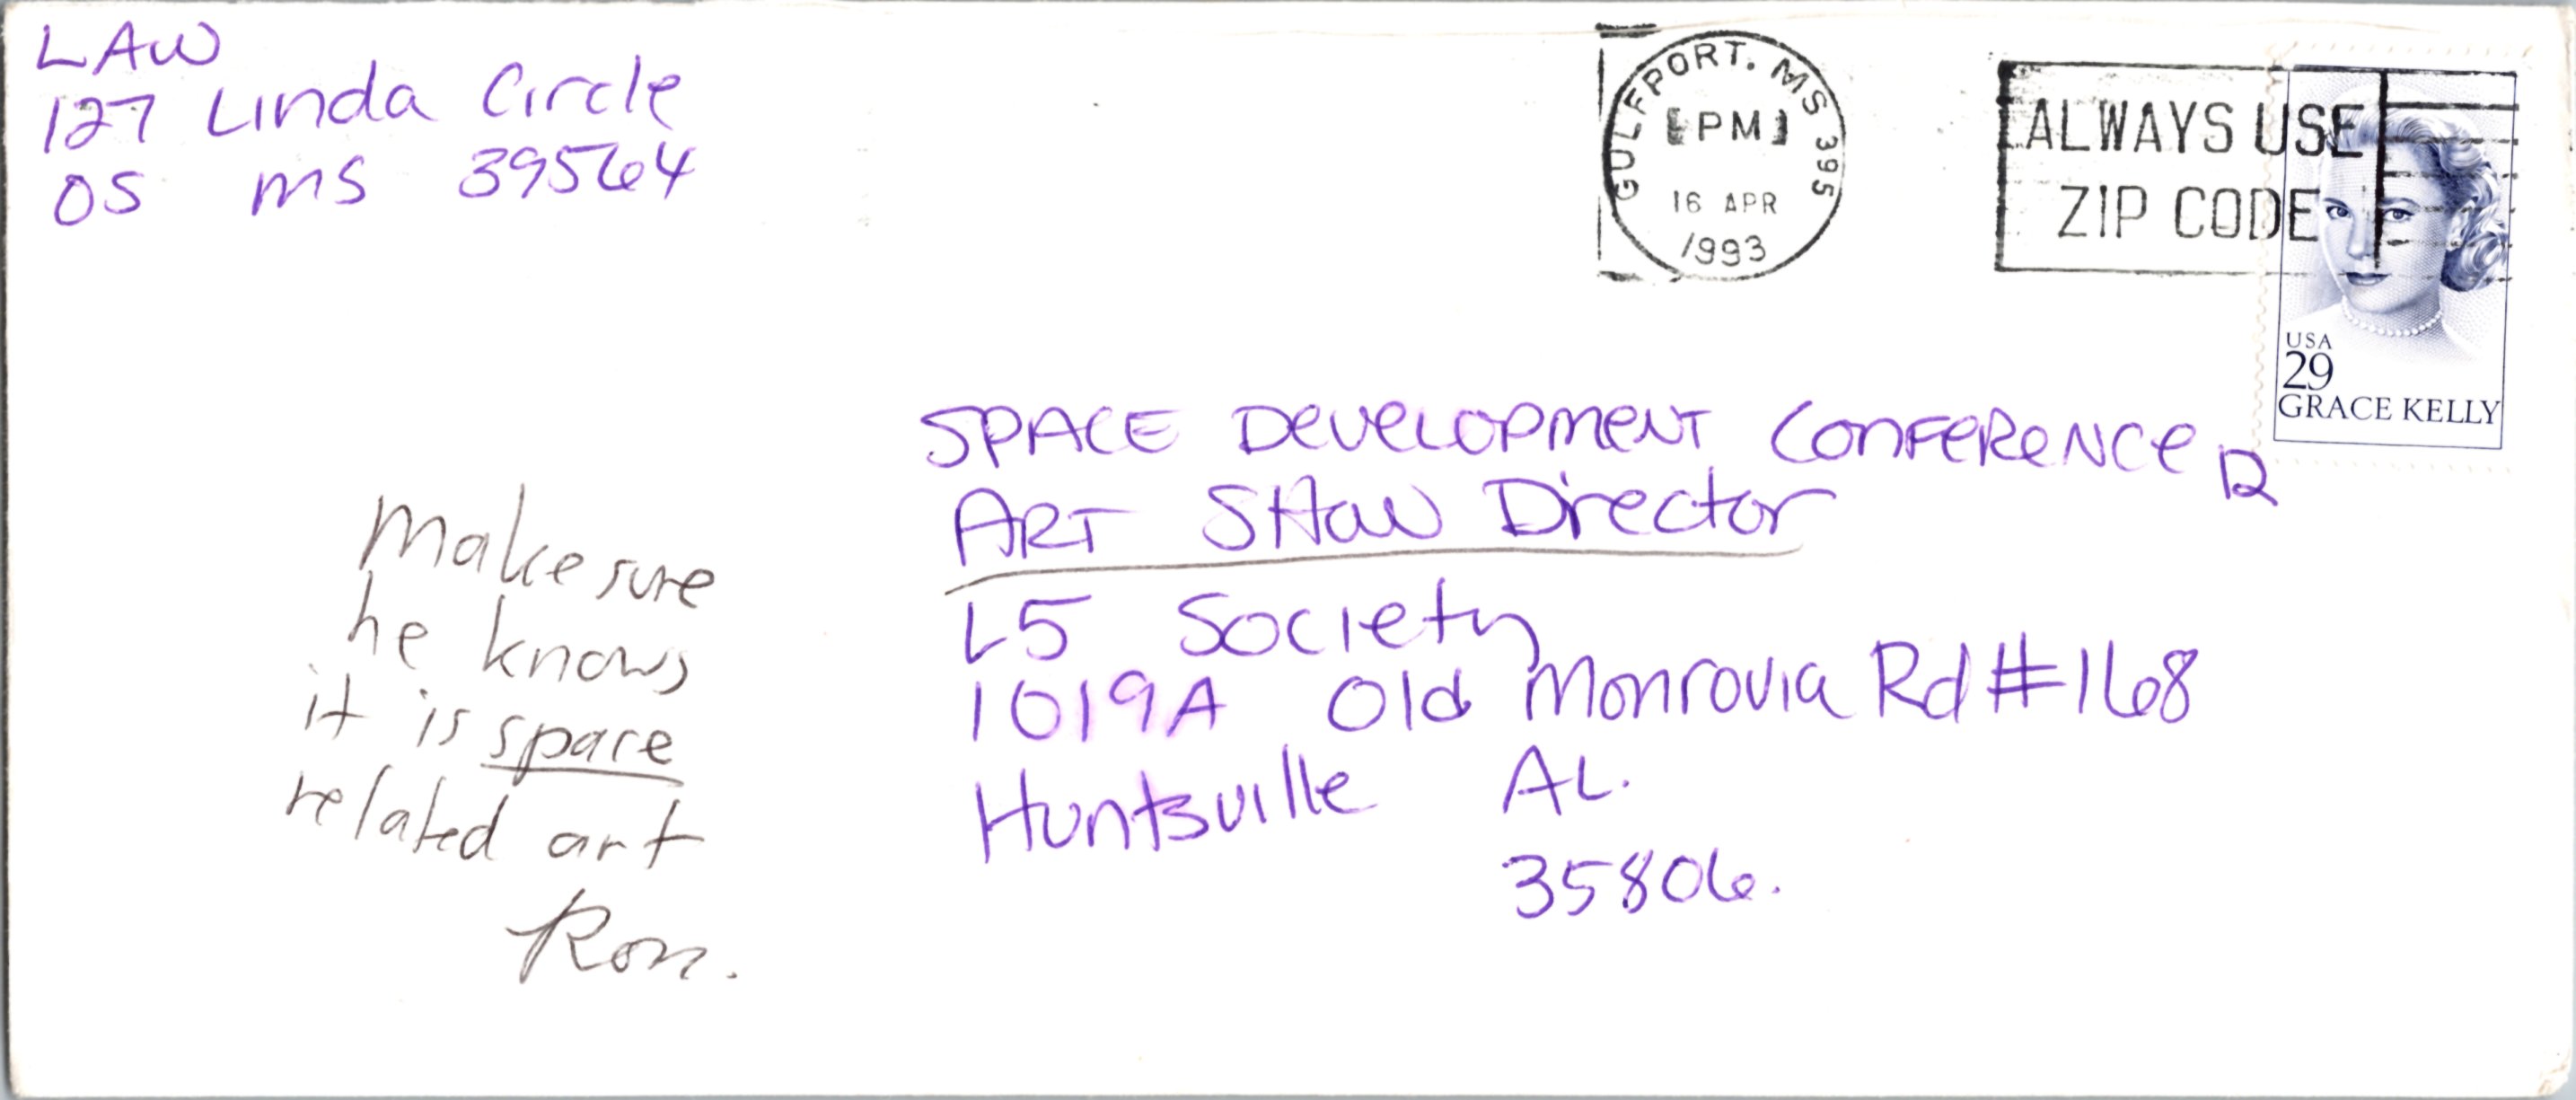 LAW
127 Linda Circle
OS MS 39564
GULFPORT. MS 395
PM
16 APR
1993
ALWAYS USE
ZIP CODE
USA
29
GRACE KELLY
SPACE DEVELOPMENT CONFERENCE
ART SHOW Director
L5 Society
1019A Old Monrovia Rd #168
Huntsville AL.
35806.
Make sure
he knows
it is space
related art
Ron.